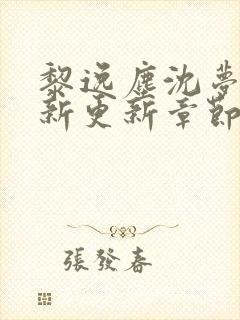 黎逸塵沈夢
新更新章節
張發春